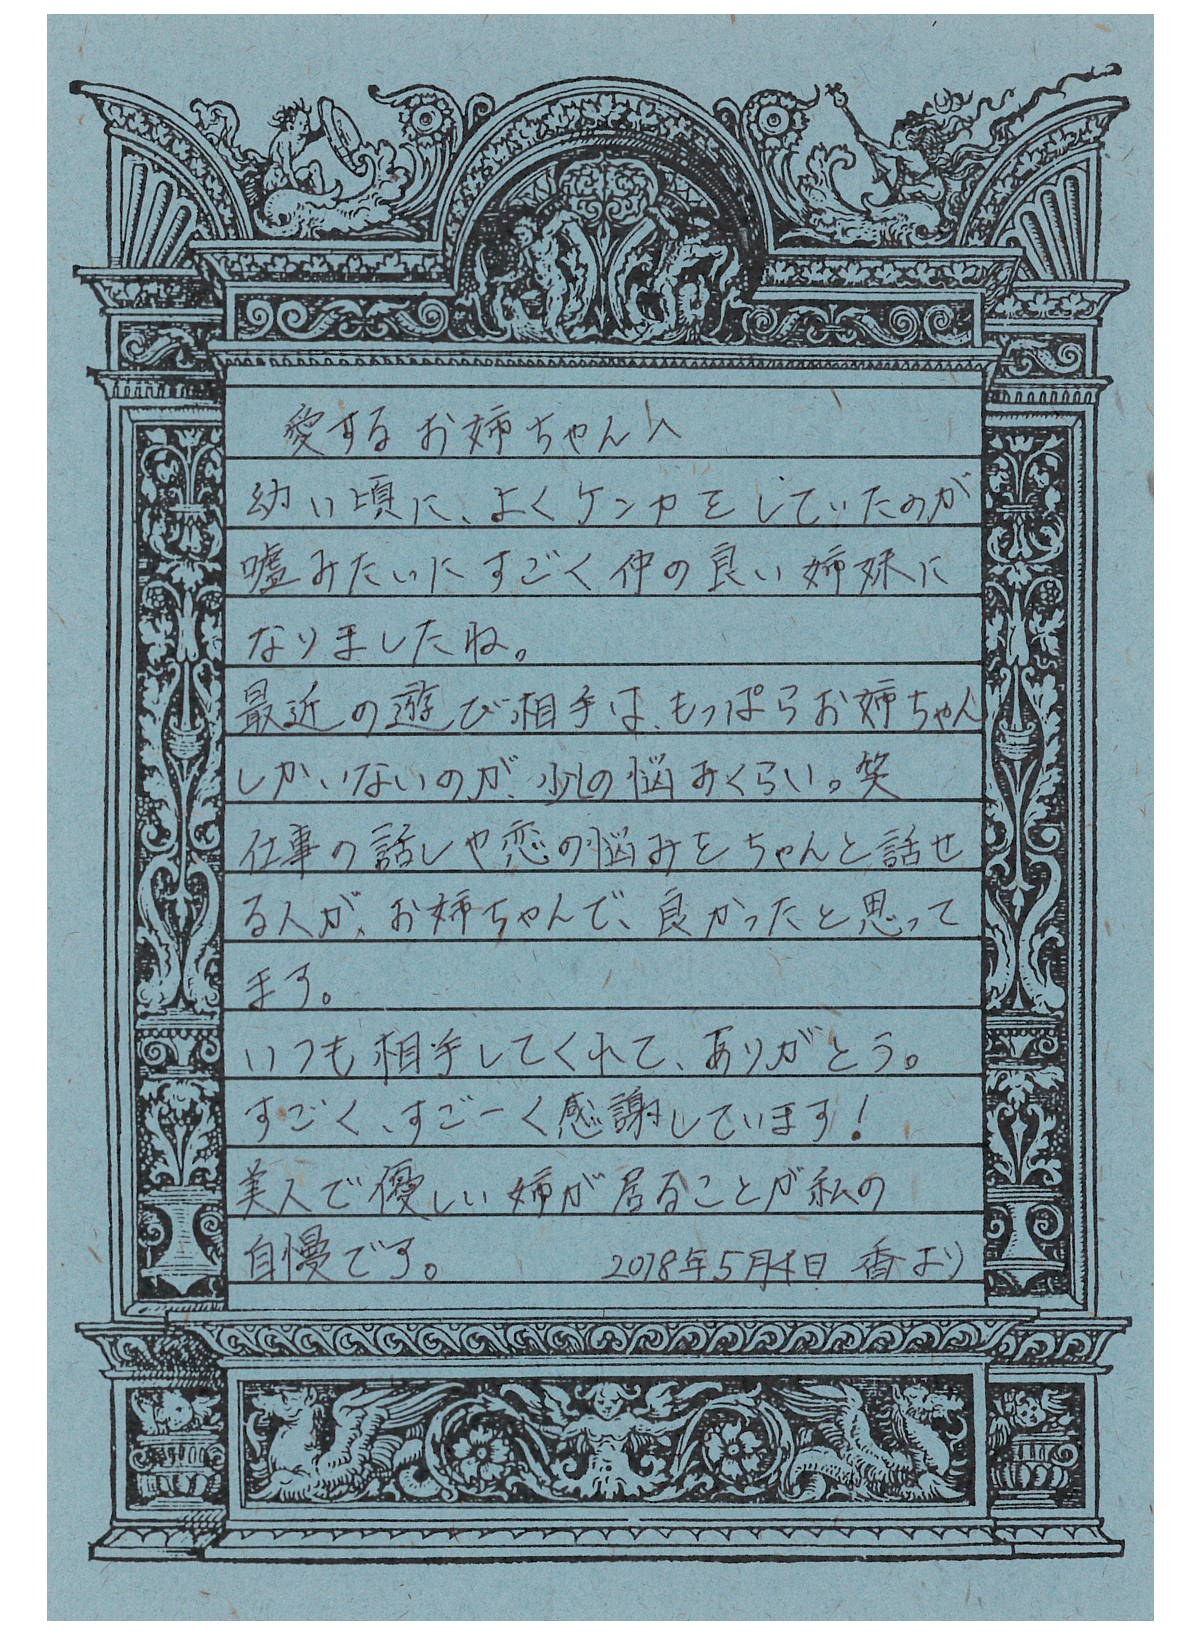 愛するお姉ちゃんへ
幼い頃に、よくケンカをしていたのが
嘘みたいにすごく仲の良い姉妹に
なりましたね。
最近の遊び相手は、もっぱらお姉ちゃん
しかいないのが、少しの悩みくらい。笑
仕事の話しや恋の悩みをちゃんと話せ
る人が、お姉ちゃんで、良かったと思って
ます。
いつも相手してくれて、ありがとう。
すごく、すごーく感謝しています!
美人で優しい姉が居ることが私の
自慢です。 2018年5月4日 香より